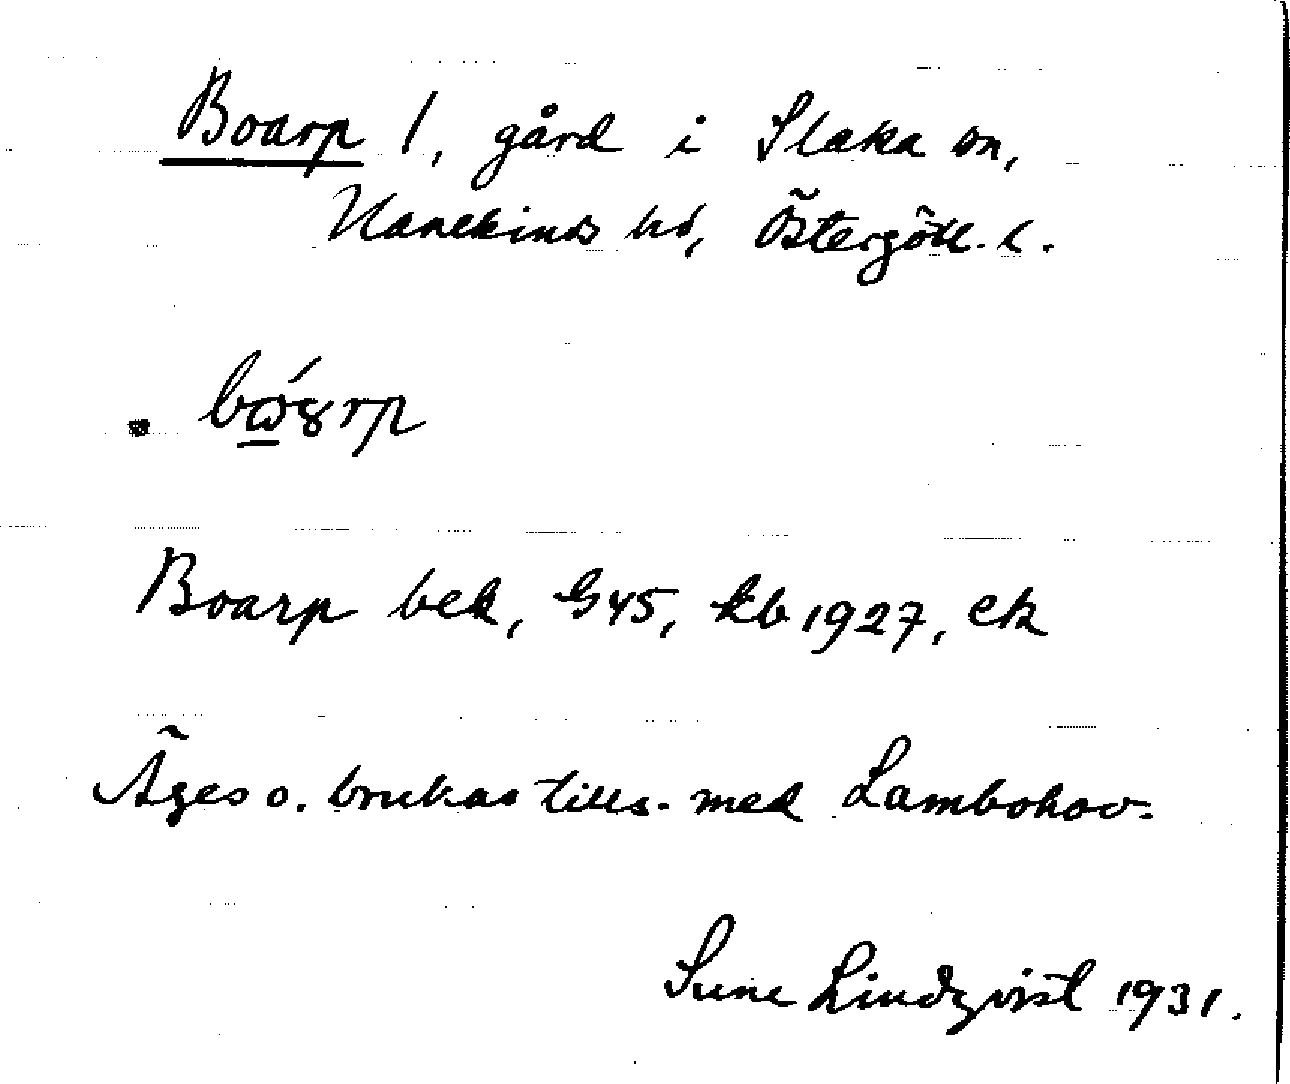 Boarp 1, gård i Slaka sn,
Hanekinds hd, Östergötl. l.
Boarp bek, G45, kb 1927, ek
Äges o. brukas tills. med Lambohov.
Sune Lindqvist 1931.